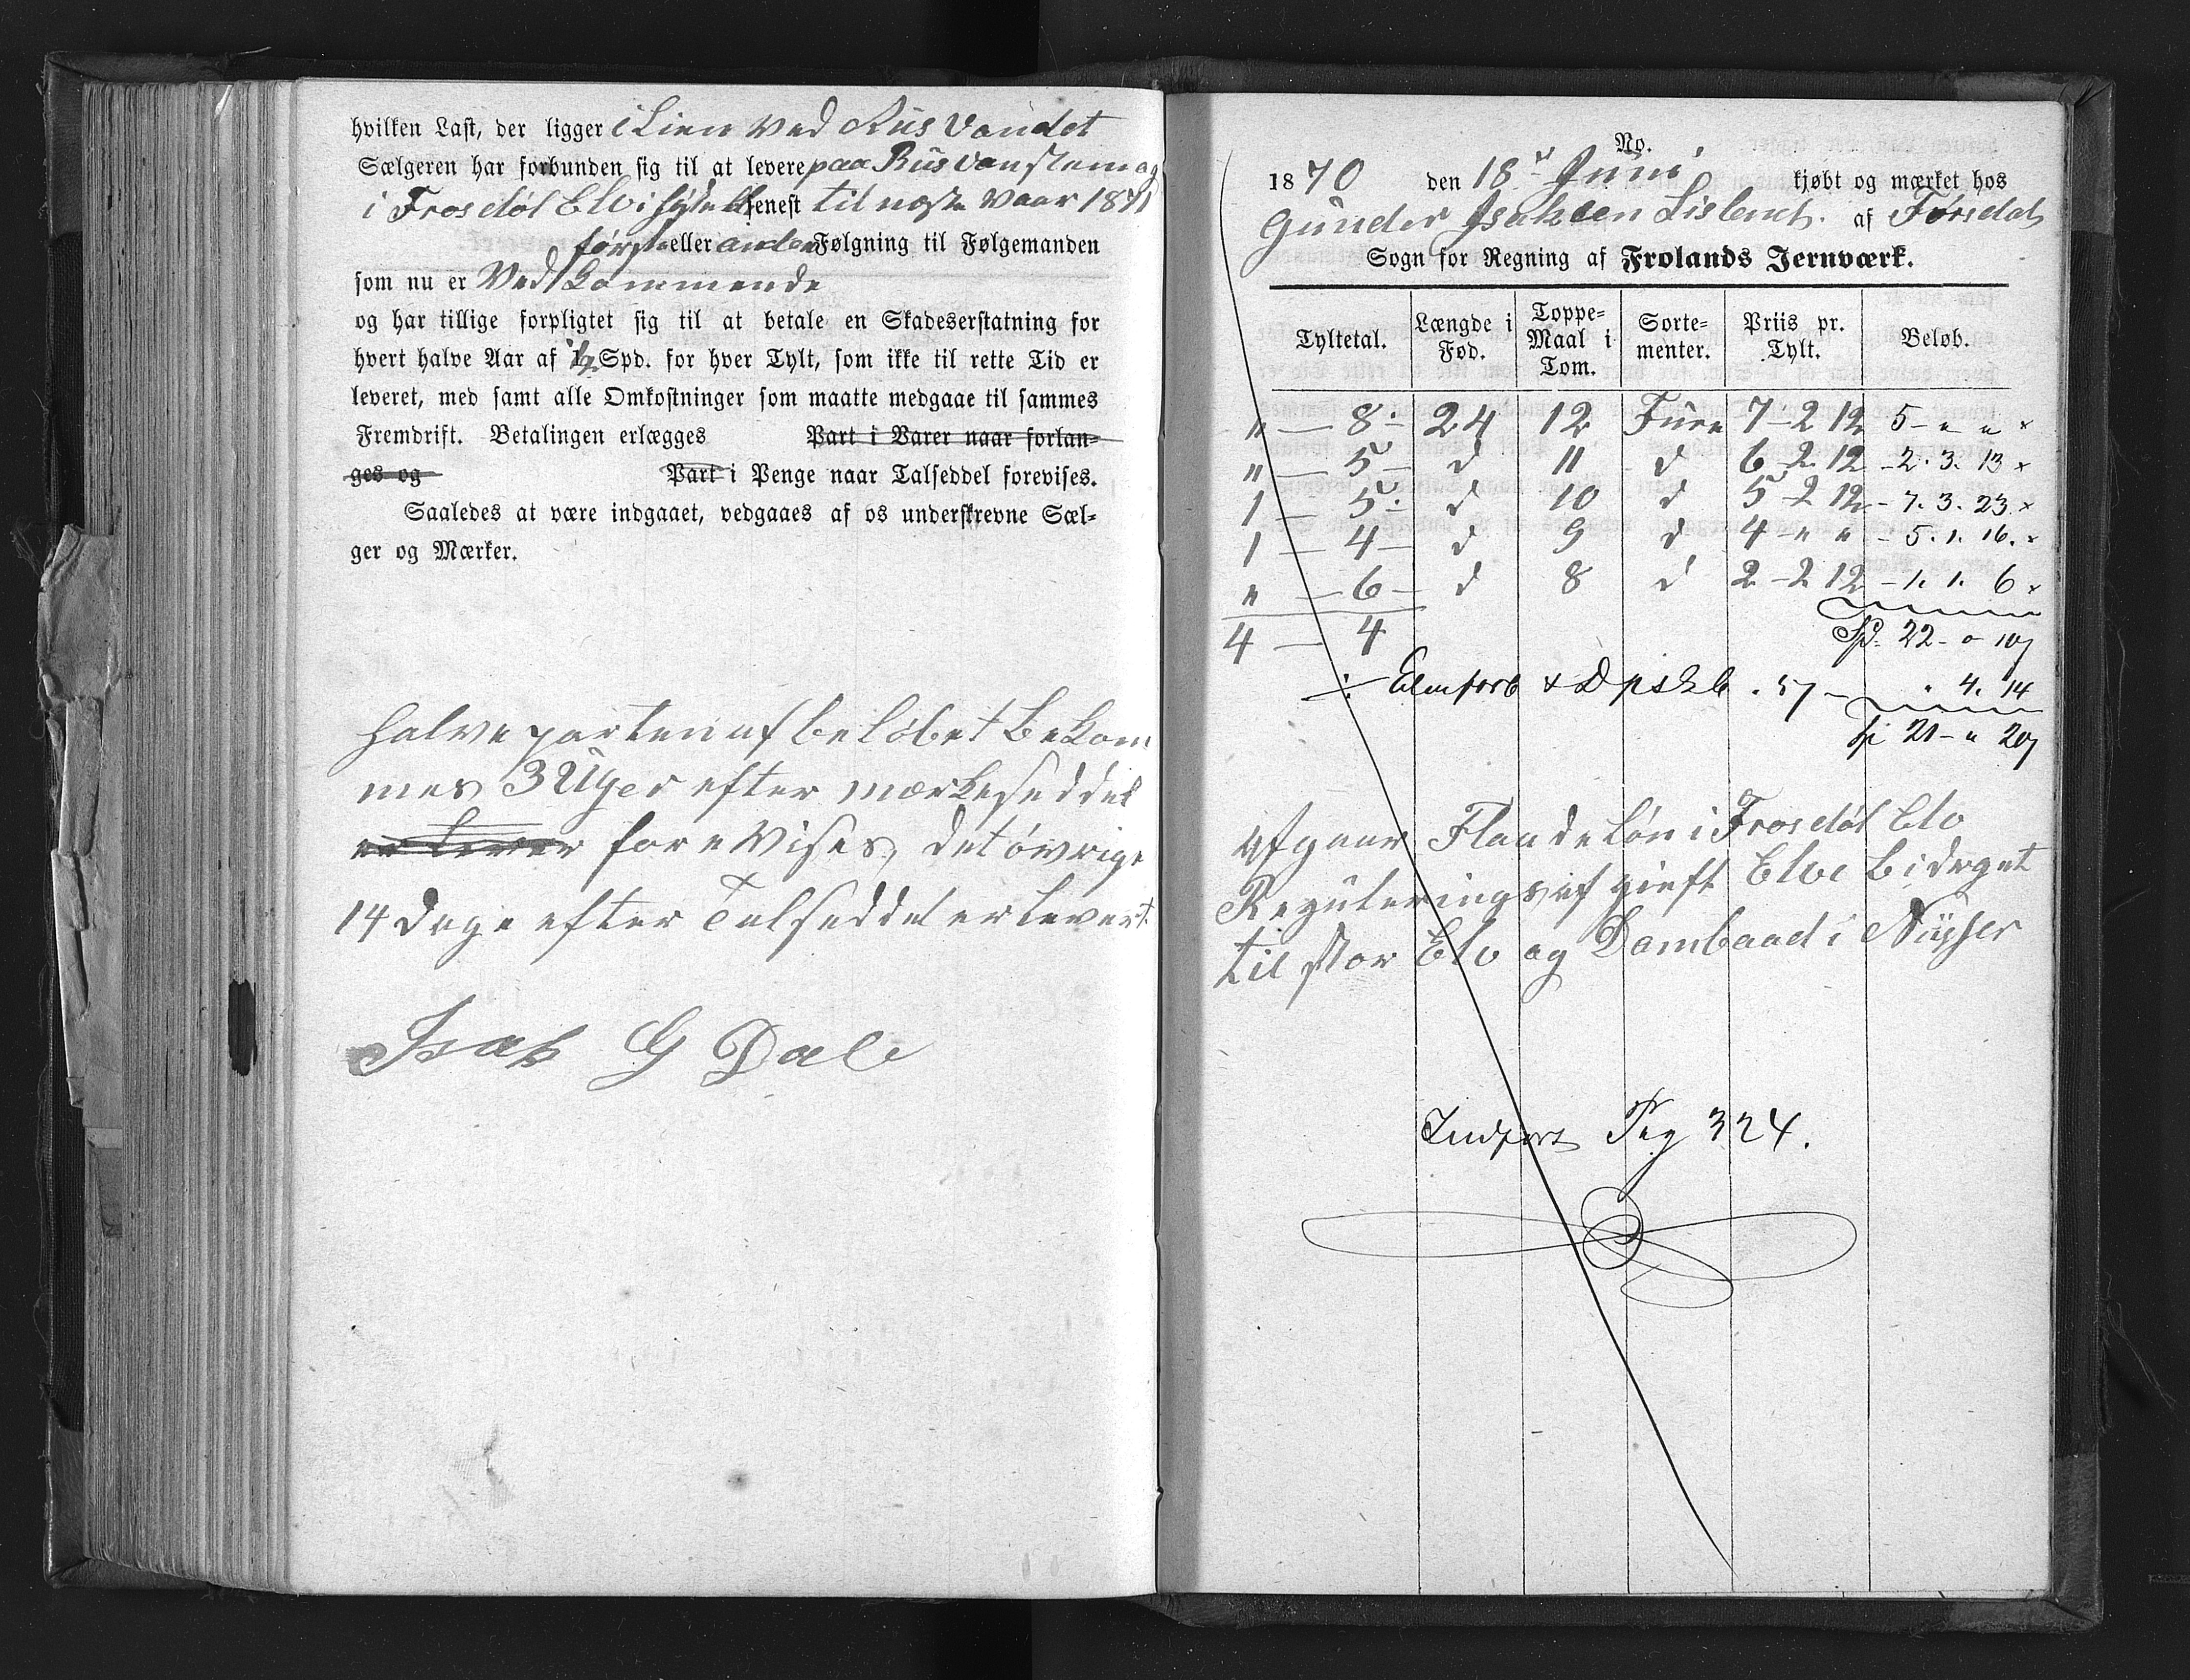 hvilken Last, der ligger i Lien ved Rus Vandet
Sælgeren har forbunden sig til at levere paa Rus van stem og
i Frosdøl Elv i senest til neste Vaar 1871
første eller anden Følgning til Følgemanden
som nu er Ved Kommende
og har tillige forpligtet sig til at betale en Skadeserstatning for
hvert halve Aar af 1/2 Spd. for hver Tylt, som ikke til rette Tid er
leveret, med samt alle Omkostninger som maatte medgaae til sammes
Fremdrift. Betalingen erlægges Part i Varer naar forlan-
ges og Part i Penge naar Talseddel forevises.
Saaledes at være indgaaet, vedgaaes af os underskrevne Sæl-
ger og Mærker.
halve parten af beløbet bekom
mes 3 Uger efter mærkeseddel
er forevises, det øvrige
14 Dage efter Talseddel er levert
Isak G Dale
No.
1870 den 18 Juni kjøbt og mærket hos
Gunder Isaksen af
Sogn for Regning af Frolands Jernværk.
Tyltetal. Længde i Fod. Toppe-Maal i Tom. Sorte-menter. Priis pr. Tylt. Beløb.
" — 8 - 24 12 Furu 7 - 2 12 5 - " "
" — 5 - d 11 d 6 - 2 12 - 2. 3. 13
1 — 5 - d 10 d 5 - 2 12 - 7. 3. 23
1 — 4 - d 9 d 4 - " " - 5. 1. 16.
" — 6 - d 8 d 2 - 2 12 - 1. 1. 6
4 — 4 Spd. 22 - 0 10
. 57 - " 4. 14
Sp 21 - " 20
Afgaar Flaadeløn i Frosdøl Elv
Reguleringsafgift Elve bidraget
til stor Elv og Dambaand i Nisser
Indført Pag 324.